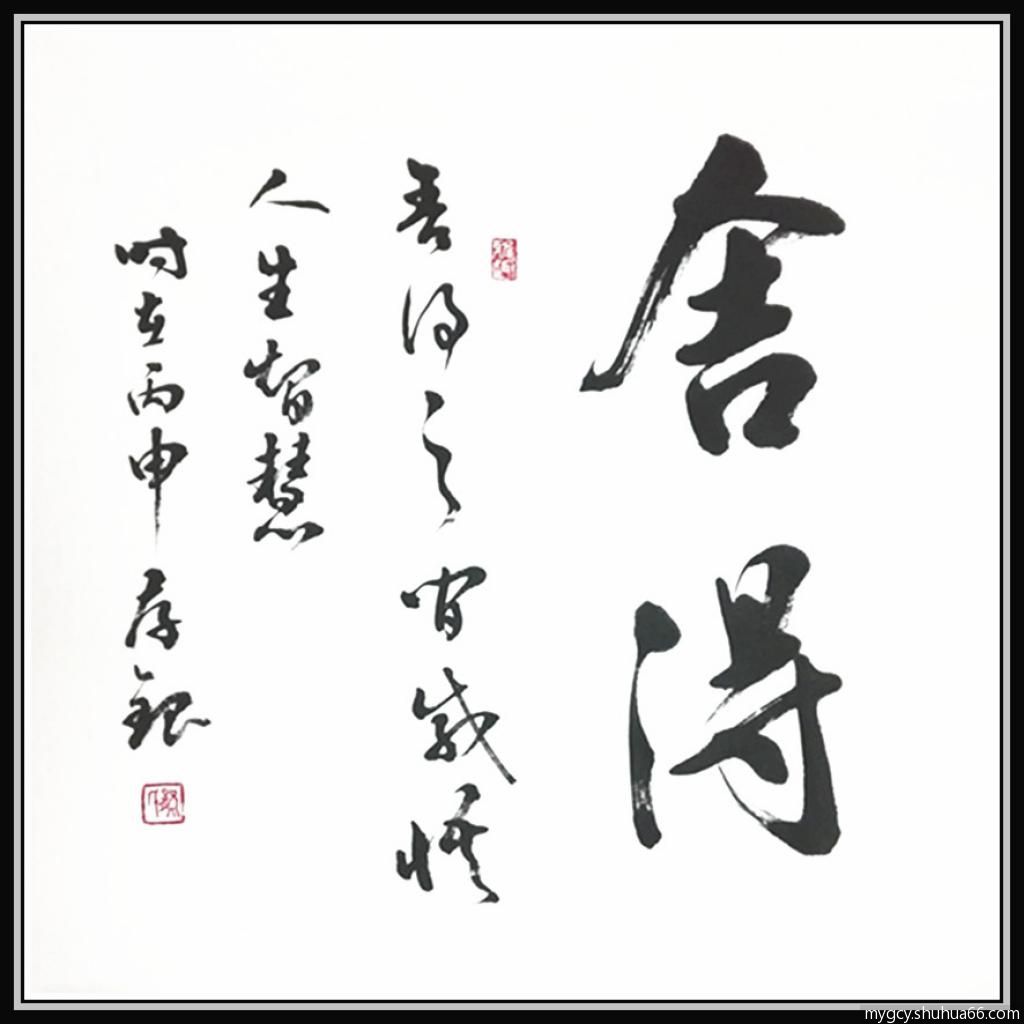 舍得
舍得之间感悟
人生智慧
时在丙申 存银
mygcy.shuhua66.com